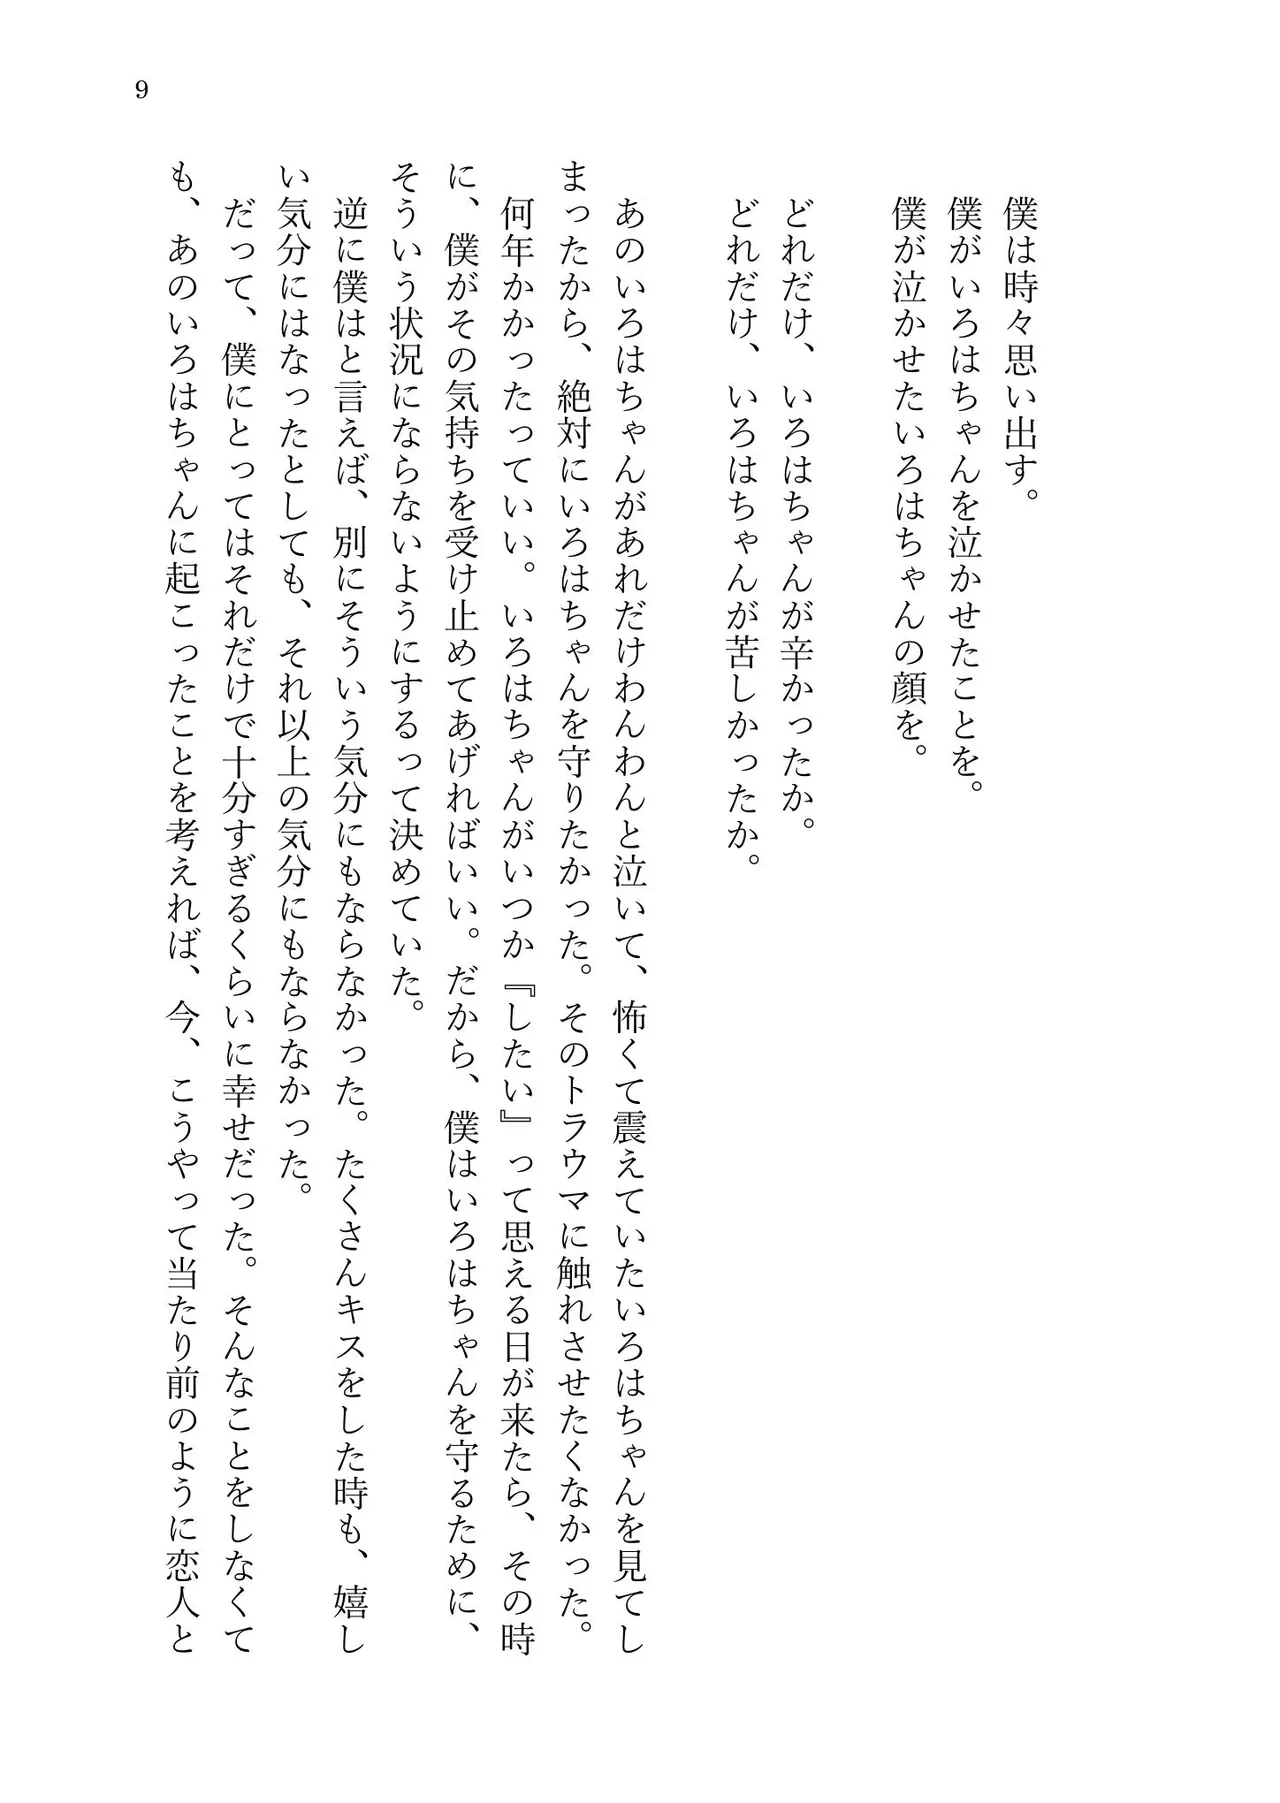 9
僕は時々思い出す。
僕がいろはちゃんを泣かせたことを。
僕が泣かせたいろはちゃんの顔を。
どれだけ、いろはちゃんが辛かったか。
どれだけ、いろはちゃんが苦しかったか。
あのいろはちゃんがあれだけわんわんと泣いて、怖くて震えていたいろはちゃんを見てし
まったから、絶対にいろはちゃんを守りたかった。そのトラウマに触れさせたくなかった。
何年かかったっていい。いろはちゃんがいつか『したい』って思える日が来たら、その時
に、僕がその気持ちを受け止めてあげればいい。だから、僕はいろはちゃんを守るために、
そういう状況にならないようにするって決めていた。
逆に僕はと言えば、別にそういう気分にもならなかった。たくさんキスをした時も、嬉し
い気分にはなったとしても、それ以上の気分にもならなかった。
だって、僕にとってはそれだけで十分すぎるくらいに幸せだった。そんなことをしなくて
も、あのいろはちゃんに起こったことを考えれば、今、こうやって当たり前のように恋人と